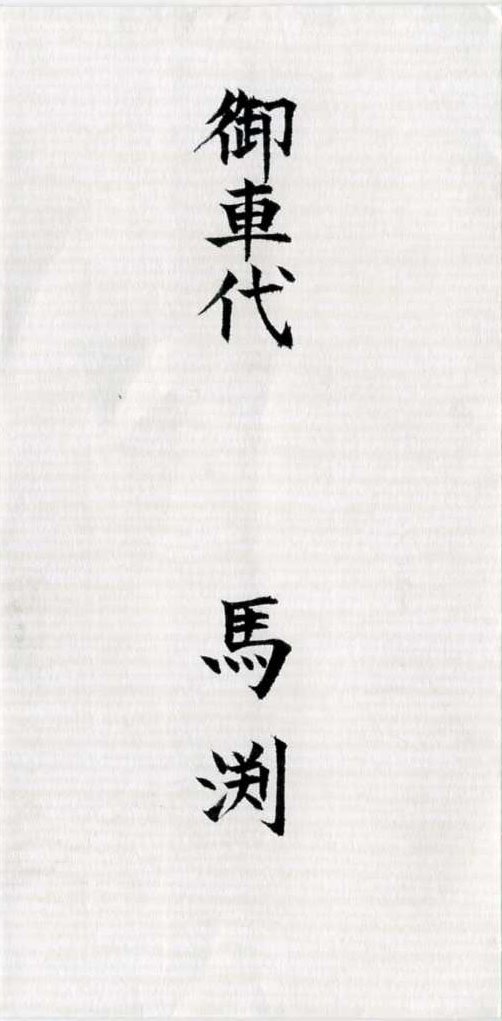 御車代
馬渕